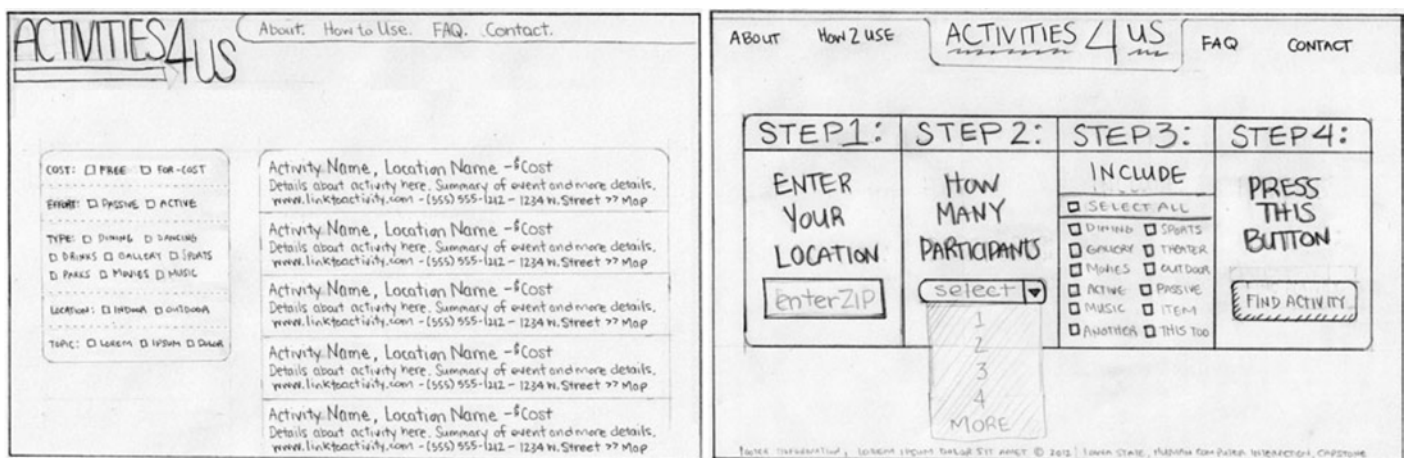 ACTIVITIES 4 US
About. How to Use. FAQ. Contact.
COST: FREE FOR-COST
EFFORT: PASSIVE ACTIVE
TYPE: DINING DANCING
DRINKS GALLERY SPORTS
PARKS MOVIES MUSIC
LOCATION: INDOOR OUTDOOR
TOPIC: LOREM IPSUM DOLOR
Activity Name, Location Name - $Cost
Details about activity here. Summary of event and more details.
www.linktoactivity.com - (555) 555-1212 - 1234 W. Street >> Map
Activity Name, Location Name - $Cost
Details about activity here. Summary of event and more details.
www.linktoactivity.com - (555) 555-1212 - 1234 W. Street >> Map
Activity Name, Location Name - $Cost
Details about activity here. Summary of event and more details.
www.linktoactivity.com - (555) 555-1212 - 1234 W. Street >> Map
Activity Name, Location Name - $Cost
Details about activity here. Summary of event and more details.
www.linktoactivity.com - (555) 555-1212 - 1234 W. Street >> Map
Activity Name, Location Name - $Cost
Details about activity here. Summary of event and more details.
www.linktoactivity.com - (555) 555-1212 - 1234 W. Street >> Map
ABOUT HOW 2 USE ACTIVITIES 4 US FAQ CONTACT
STEP 1:
ENTER
YOUR
LOCATION
enter ZIP
STEP 2:
HOW
MANY
PARTICIPANTS
select
1
2
3
4
MORE
STEP 3:
INCLUDE
SELECT ALL
DINING SPORTS
GALLERY THEATER
MOVIES OUTDOOR
ACTIVE PASSIVE
MUSIC ITEM
ANOTHER THIS TOO
STEP 4:
PRESS
THIS
BUTTON
FIND ACTIVITY
FOOTER INFORMATION, LOREM IPSUM DOLOR SIT AMET © 2012 IOWA STATE, HUMAN COMPUTER INTERACTION, CAPSTONE